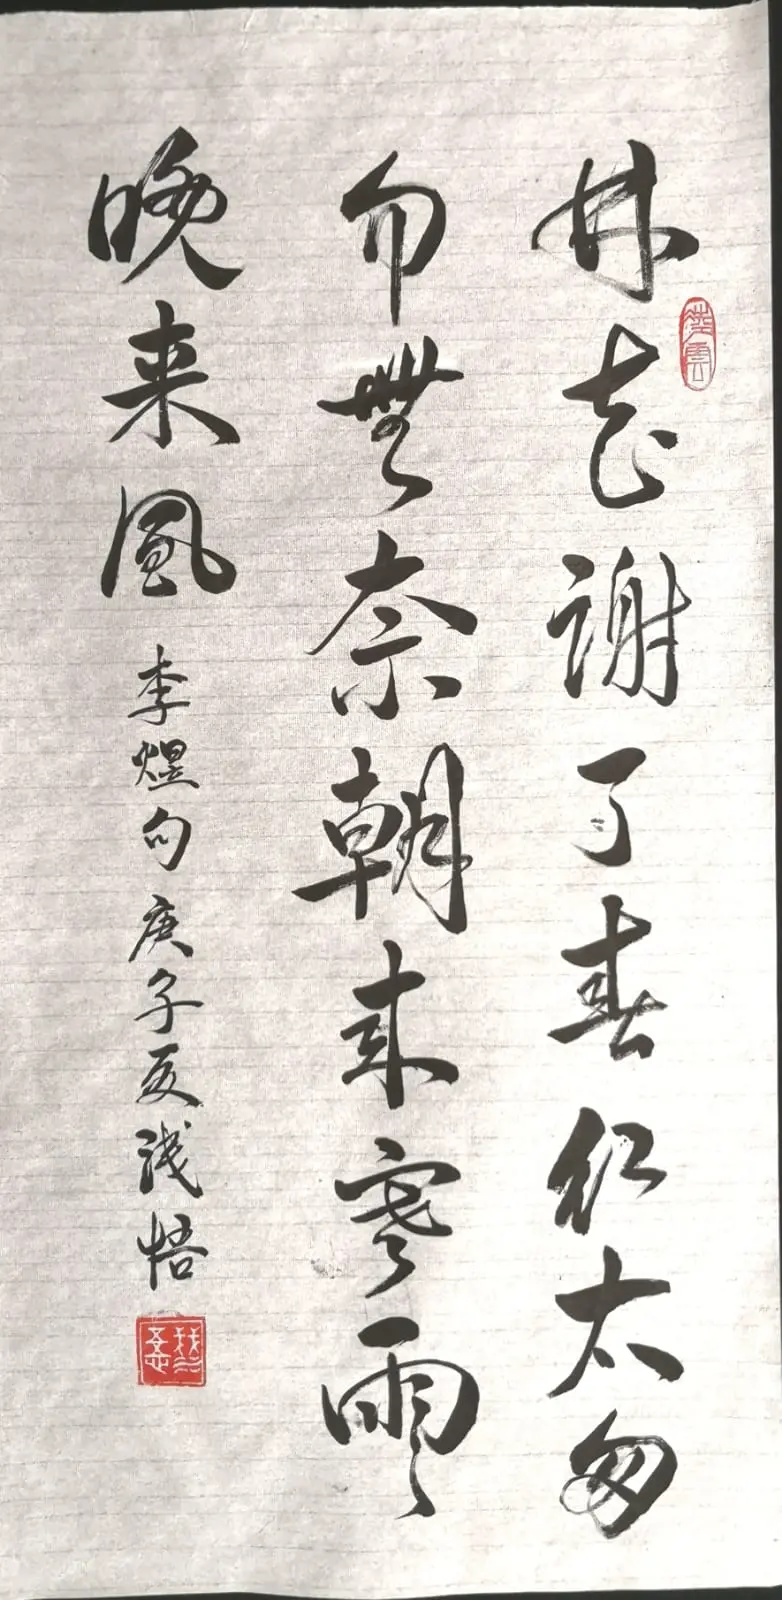 林花謝了春红太匆
匆無奈朝来寒雨
晚来風
李煜句庚子夏浅悟